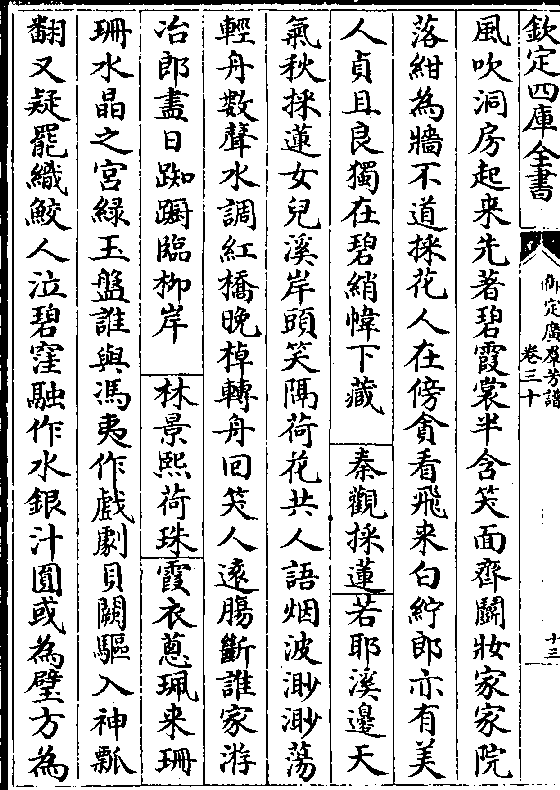 欽定四庫全書
御定廣羣芳譜
卷三十
十三
風吹洞房起来先著碧霞裳半含笑面齊鬬妝家家院
落紺為牆不道採花人在傍貪看飛来白紵郎亦有美
人貞且良獨在碧綃幃下藏 秦觀採蓮若耶溪邊天
氣秋採蓮女兒溪岸頭笑隔荷花共人語烟波渺渺蕩
輕舟數聲水調紅橋晚棹轉舟回笑人遠腸斷誰家游
冶郎盡日踟蹰臨栁岸 林景熙荷珠霞衣蔥珮来珊
珊水晶之宮綠玉盤誰與馮夷作戲劇貝闕驅入神瓢
翻又疑罷織鮫人泣碧窪融作水銀汁圓或為璧方為